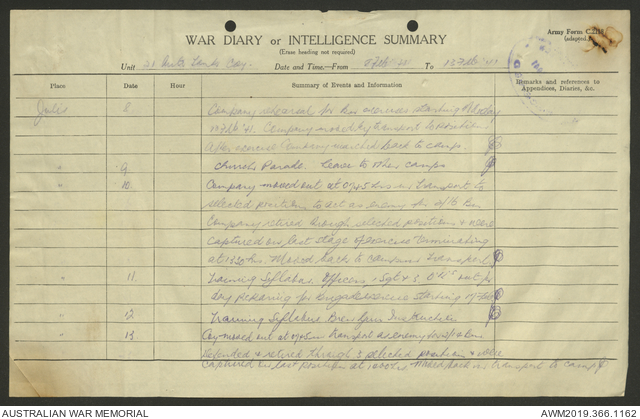 Army Form C.2118
(adapted)
WAR DIARY or INTELLIGENCE SUMMARY
(Erase heading not required)
Unit 21 Anti Tank Coy. Date and Time—From 8 Feb '41 To 13 Feb '41
Place Date Hour Summary of Events and Information Remarks and references to Appendices, Diaries, &c.
Julis 8 Company rehearsal for Bn exercises starting Monday
10 Feb '41. Company moved by transport to positions
After exercise Company marched back to camp.
" 9 Church Parade. Leave to other camps
" 10 Company moved out at 0945 hrs in transport to
selected positions to act as enemy for 2/16 Bn
Company retired through selected positions & were
captured on last stage of exercise terminating
at 1530 hrs. Moved back to camp in transport
" 11 Training Syllabus. Officers, Sgts & out for
day for Brigade exercise starting 17 Feb
" 12 Training Syllabus Bren Gun Instruction
" 13 Coy moved out at 0945 in transport as enemy for 2/14 Bn
Defended & retired through 3 selected positions & were
captured on last position at 1600 hrs. Moved back in transport to camp
AUSTRALIAN WAR MEMORIAL
AWM2019.366.1162